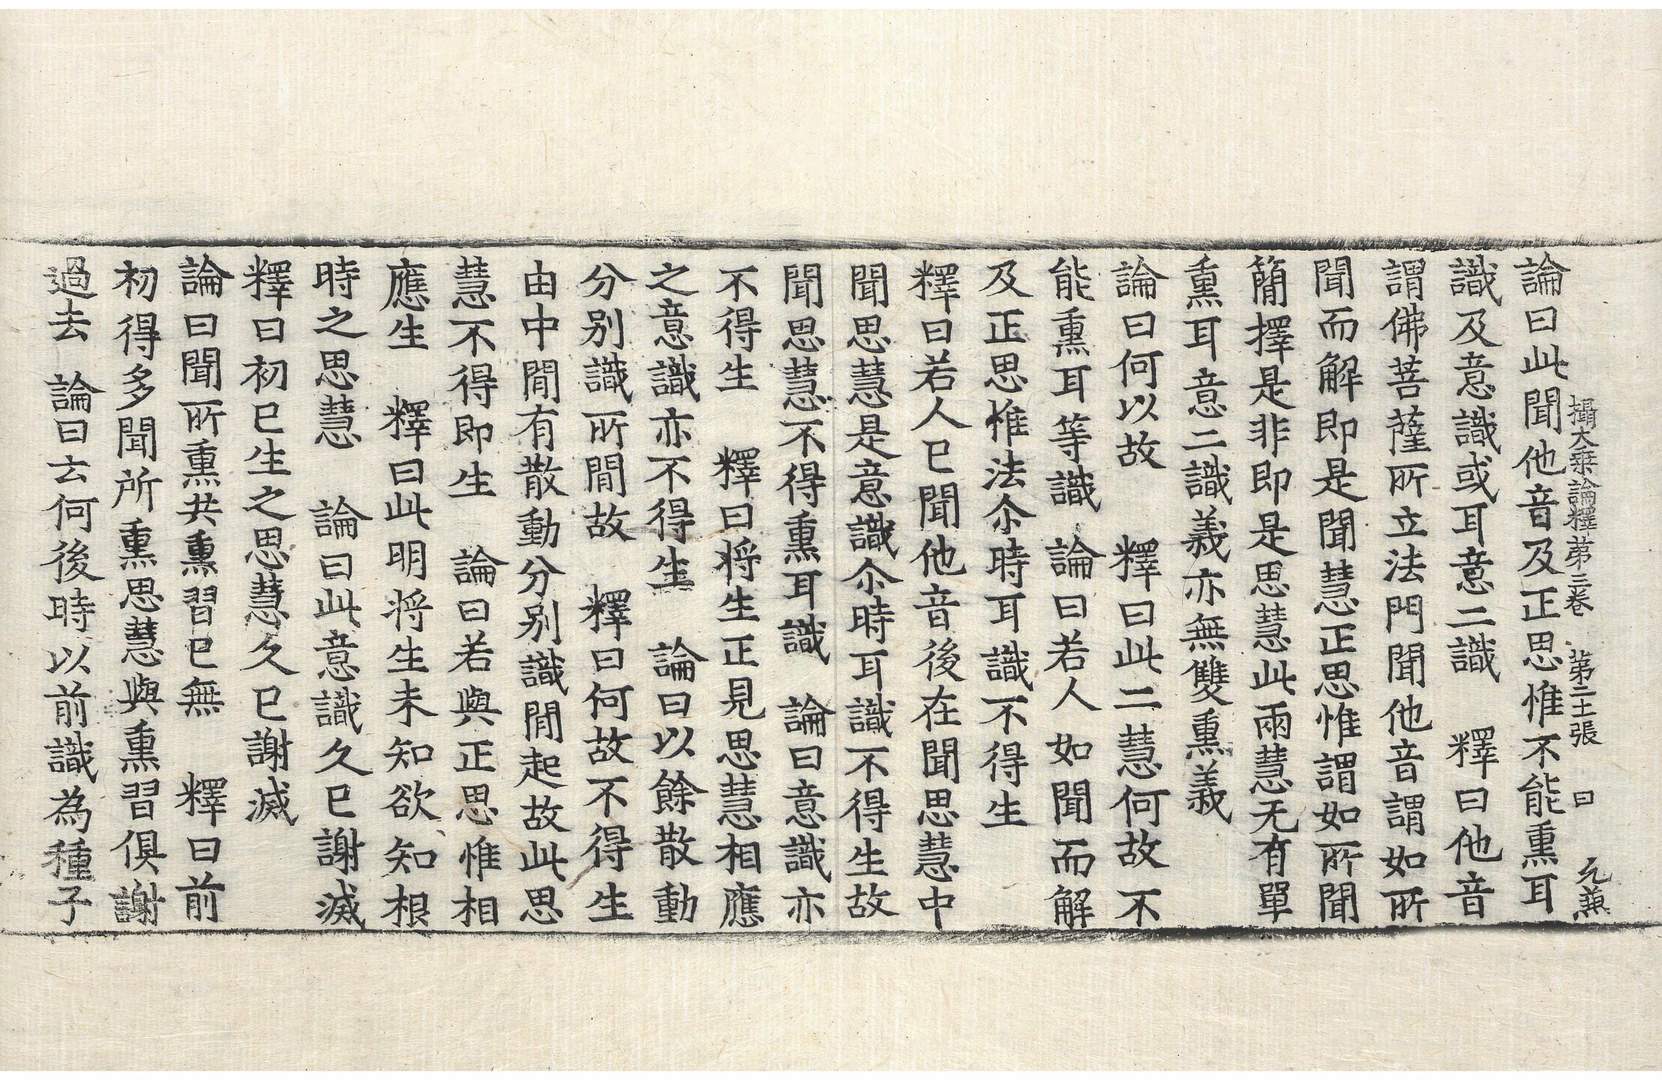 攝大乗論釋第三卷　第二十張　曰　元兼
論曰此聞他音及正思惟不能熏耳
識及意識或耳意二識　釋曰他音
謂佛菩薩所立法門聞他音謂如所
聞而解即是聞慧正思惟謂如所聞
簡擇是非即是思慧此兩慧无有單
熏耳意二識義亦無雙熏義
論曰何以故　釋曰此二慧何故不
能熏耳等識　論曰若人如聞而解
及正思惟法尒時耳識不得生
釋曰若人已聞他音後在聞思慧中
聞思慧是意識尒時耳識不得生故
聞思慧不得熏耳識　論曰意識亦
不得生　釋曰将生正見思慧相應
之意識亦不得生　論曰以餘散動
分别識所間故　釋曰何故不得生
由中間有散動分别識間起故此思
慧不得即生　論曰若與正思惟相
應生　釋曰此明将生未知欲知根
時之思慧　論曰此意識久已謝滅
釋曰初已生之思慧久已謝滅
論曰聞所熏共熏習已無　釋曰前
初得多聞所熏思慧與熏習俱謝
過去　論曰云何後時以前識為種子